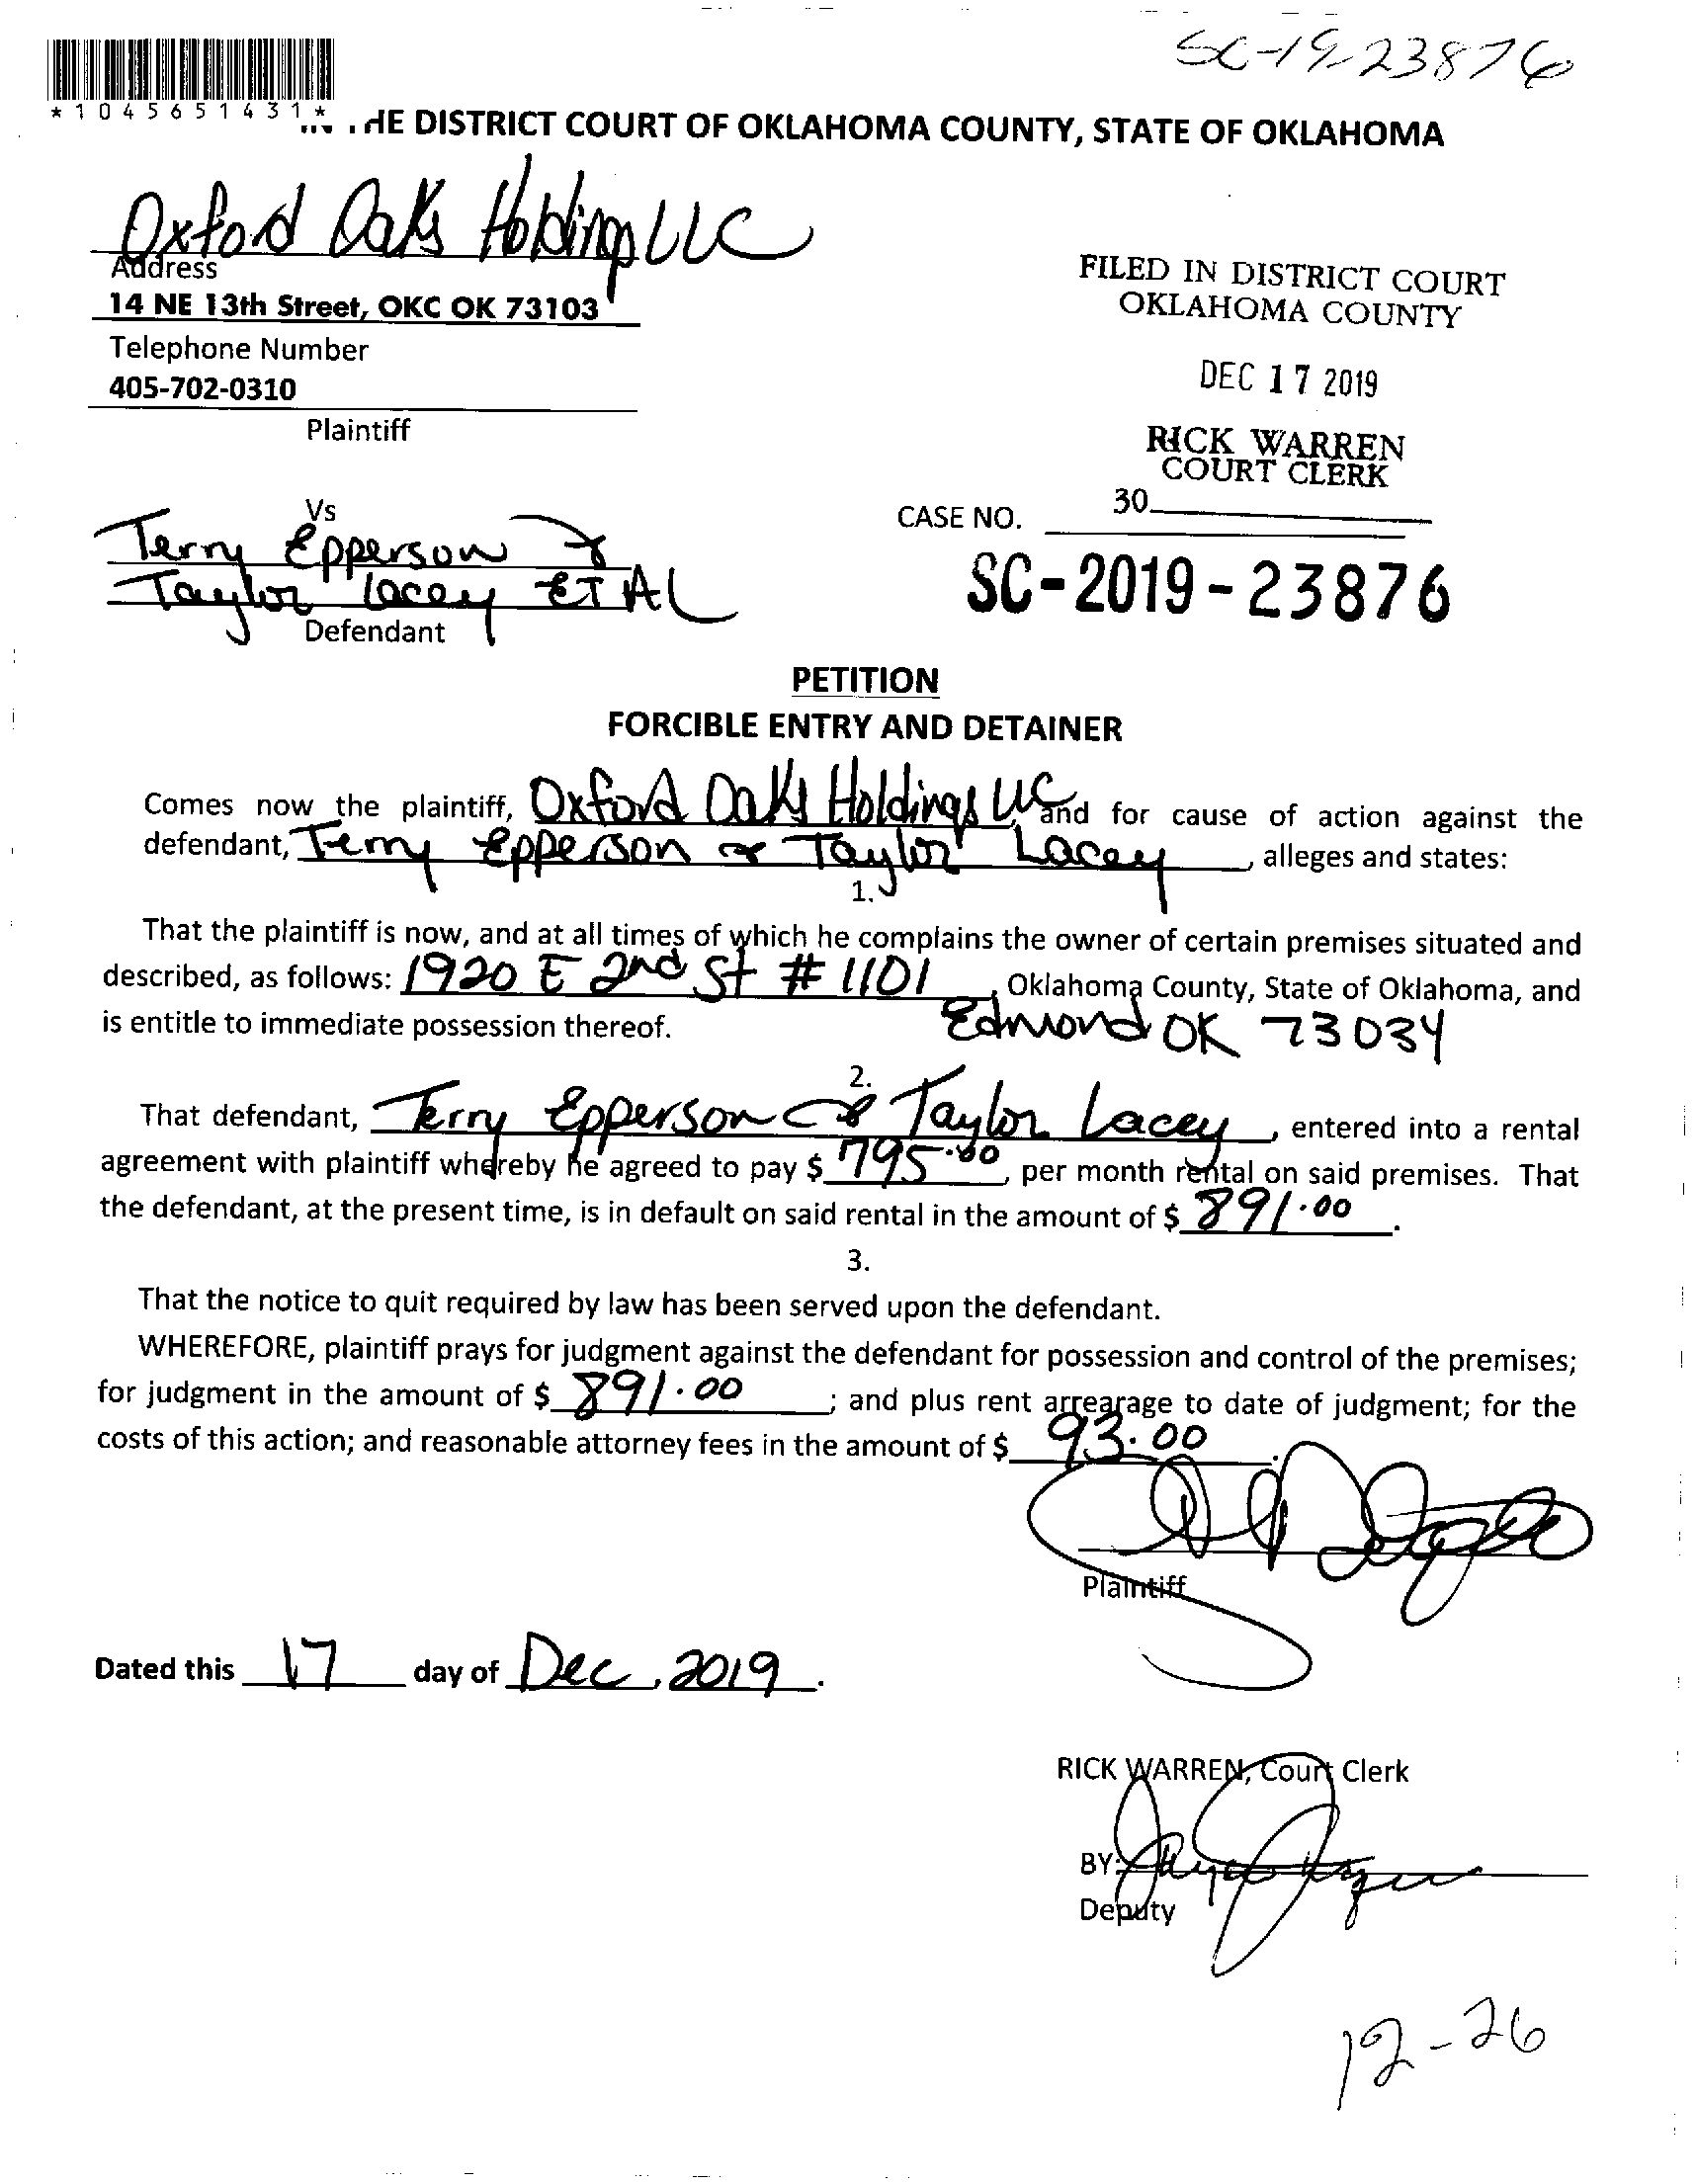 SC-19-23876
*1045651431*
HE DISTRICT COURT OF OKLAHOMA COUNTY, STATE OF OKLAHOMA
Oxford Oaks Holdings LLC
Address
14 NE 13th Street, OKC OK 73103
Telephone Number
405-702-0310
Plaintiff
FILED IN DISTRICT COURT
OKLAHOMA COUNTY
DEC 17 2019
RICK WARREN
COURT CLERK
30
Vs
Terry Epperson &
Taylor Lacey ET AL
Defendant
CASE NO.
SC-2019-23876
PETITION
FORCIBLE ENTRY AND DETAINER
Comes now the plaintiff, Oxford Oaks Holdings LLC, and for cause of action against the
defendant, Terry Epperson & Taylor Lacey, alleges and states:
1.
That the plaintiff is now, and at all times of which he complains the owner of certain premises situated and
described, as follows: 1920 E 2nd St # 1101, Oklahoma County, State of Oklahoma, and
is entitle to immediate possession thereof. Edmond OK 73034
2.
That defendant, Terry Epperson & Taylor Lacey, entered into a rental
agreement with plaintiff whereby he agreed to pay $ 795.00, per month rental on said premises. That
the defendant, at the present time, is in default on said rental in the amount of $ 891.00.
3.
That the notice to quit required by law has been served upon the defendant.
WHEREFORE, plaintiff prays for judgment against the defendant for possession and control of the premises;
for judgment in the amount of $ 891.00; and plus rent arrearage to date of judgment; for the
costs of this action; and reasonable attorney fees in the amount of $ 93.00.
Plaintiff
Dated this 17 day of Dec, 2019.
RICK WARREN, Court Clerk
BY:
Deputy
12-26